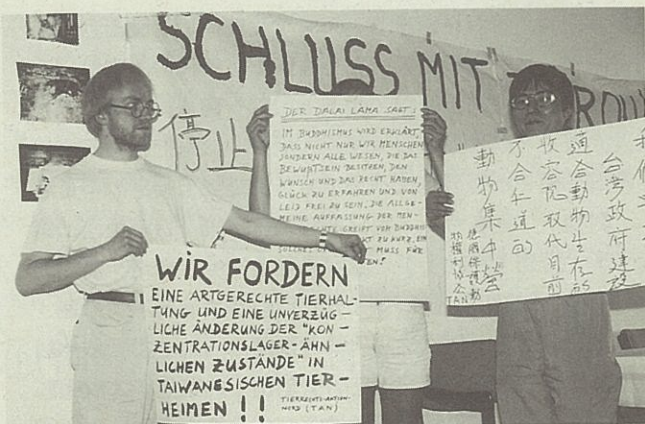 SCHLUSS MIT
停止
DER DALAI LAMA SAGT:
IM BUDDHISMUS WIRD ERKLÄRT,
DASS NICHT NUR WIR MENSCHEN
SONDERN ALLE WESEN, DIE DAS
BEWUßTSEIN BESITZEN, DEN
WUNSCH UND DAS RECHT HABEN,
GLÜCK ZU ERFAHREN UND VON
LEID FREI ZU SEIN, DIE ALLGE-
MEINE AUFFASSUNG DER MEN-
GREIFT VOM BUDDHI
ZU KURZ, EIN
MUSS FÜR
WIR FORDERN
EINE ARTGERECHTE TIERHAL-
TUNG UND EINE UNVERZÜG-
LICHE ÄNDERUNG DER "KON-
ZENTRATIONSLAGER-ÄHN-
LICHEN ZUSTÄNDE" IN
TAIWANESISCHEN TIER-
HEIMEN !!
TIERRECHTS-AKTION-
NORD (TAN)
台湾政府建設
適合動物生存的
收容院取代目前
不合乎道的
動物集中營
TAN